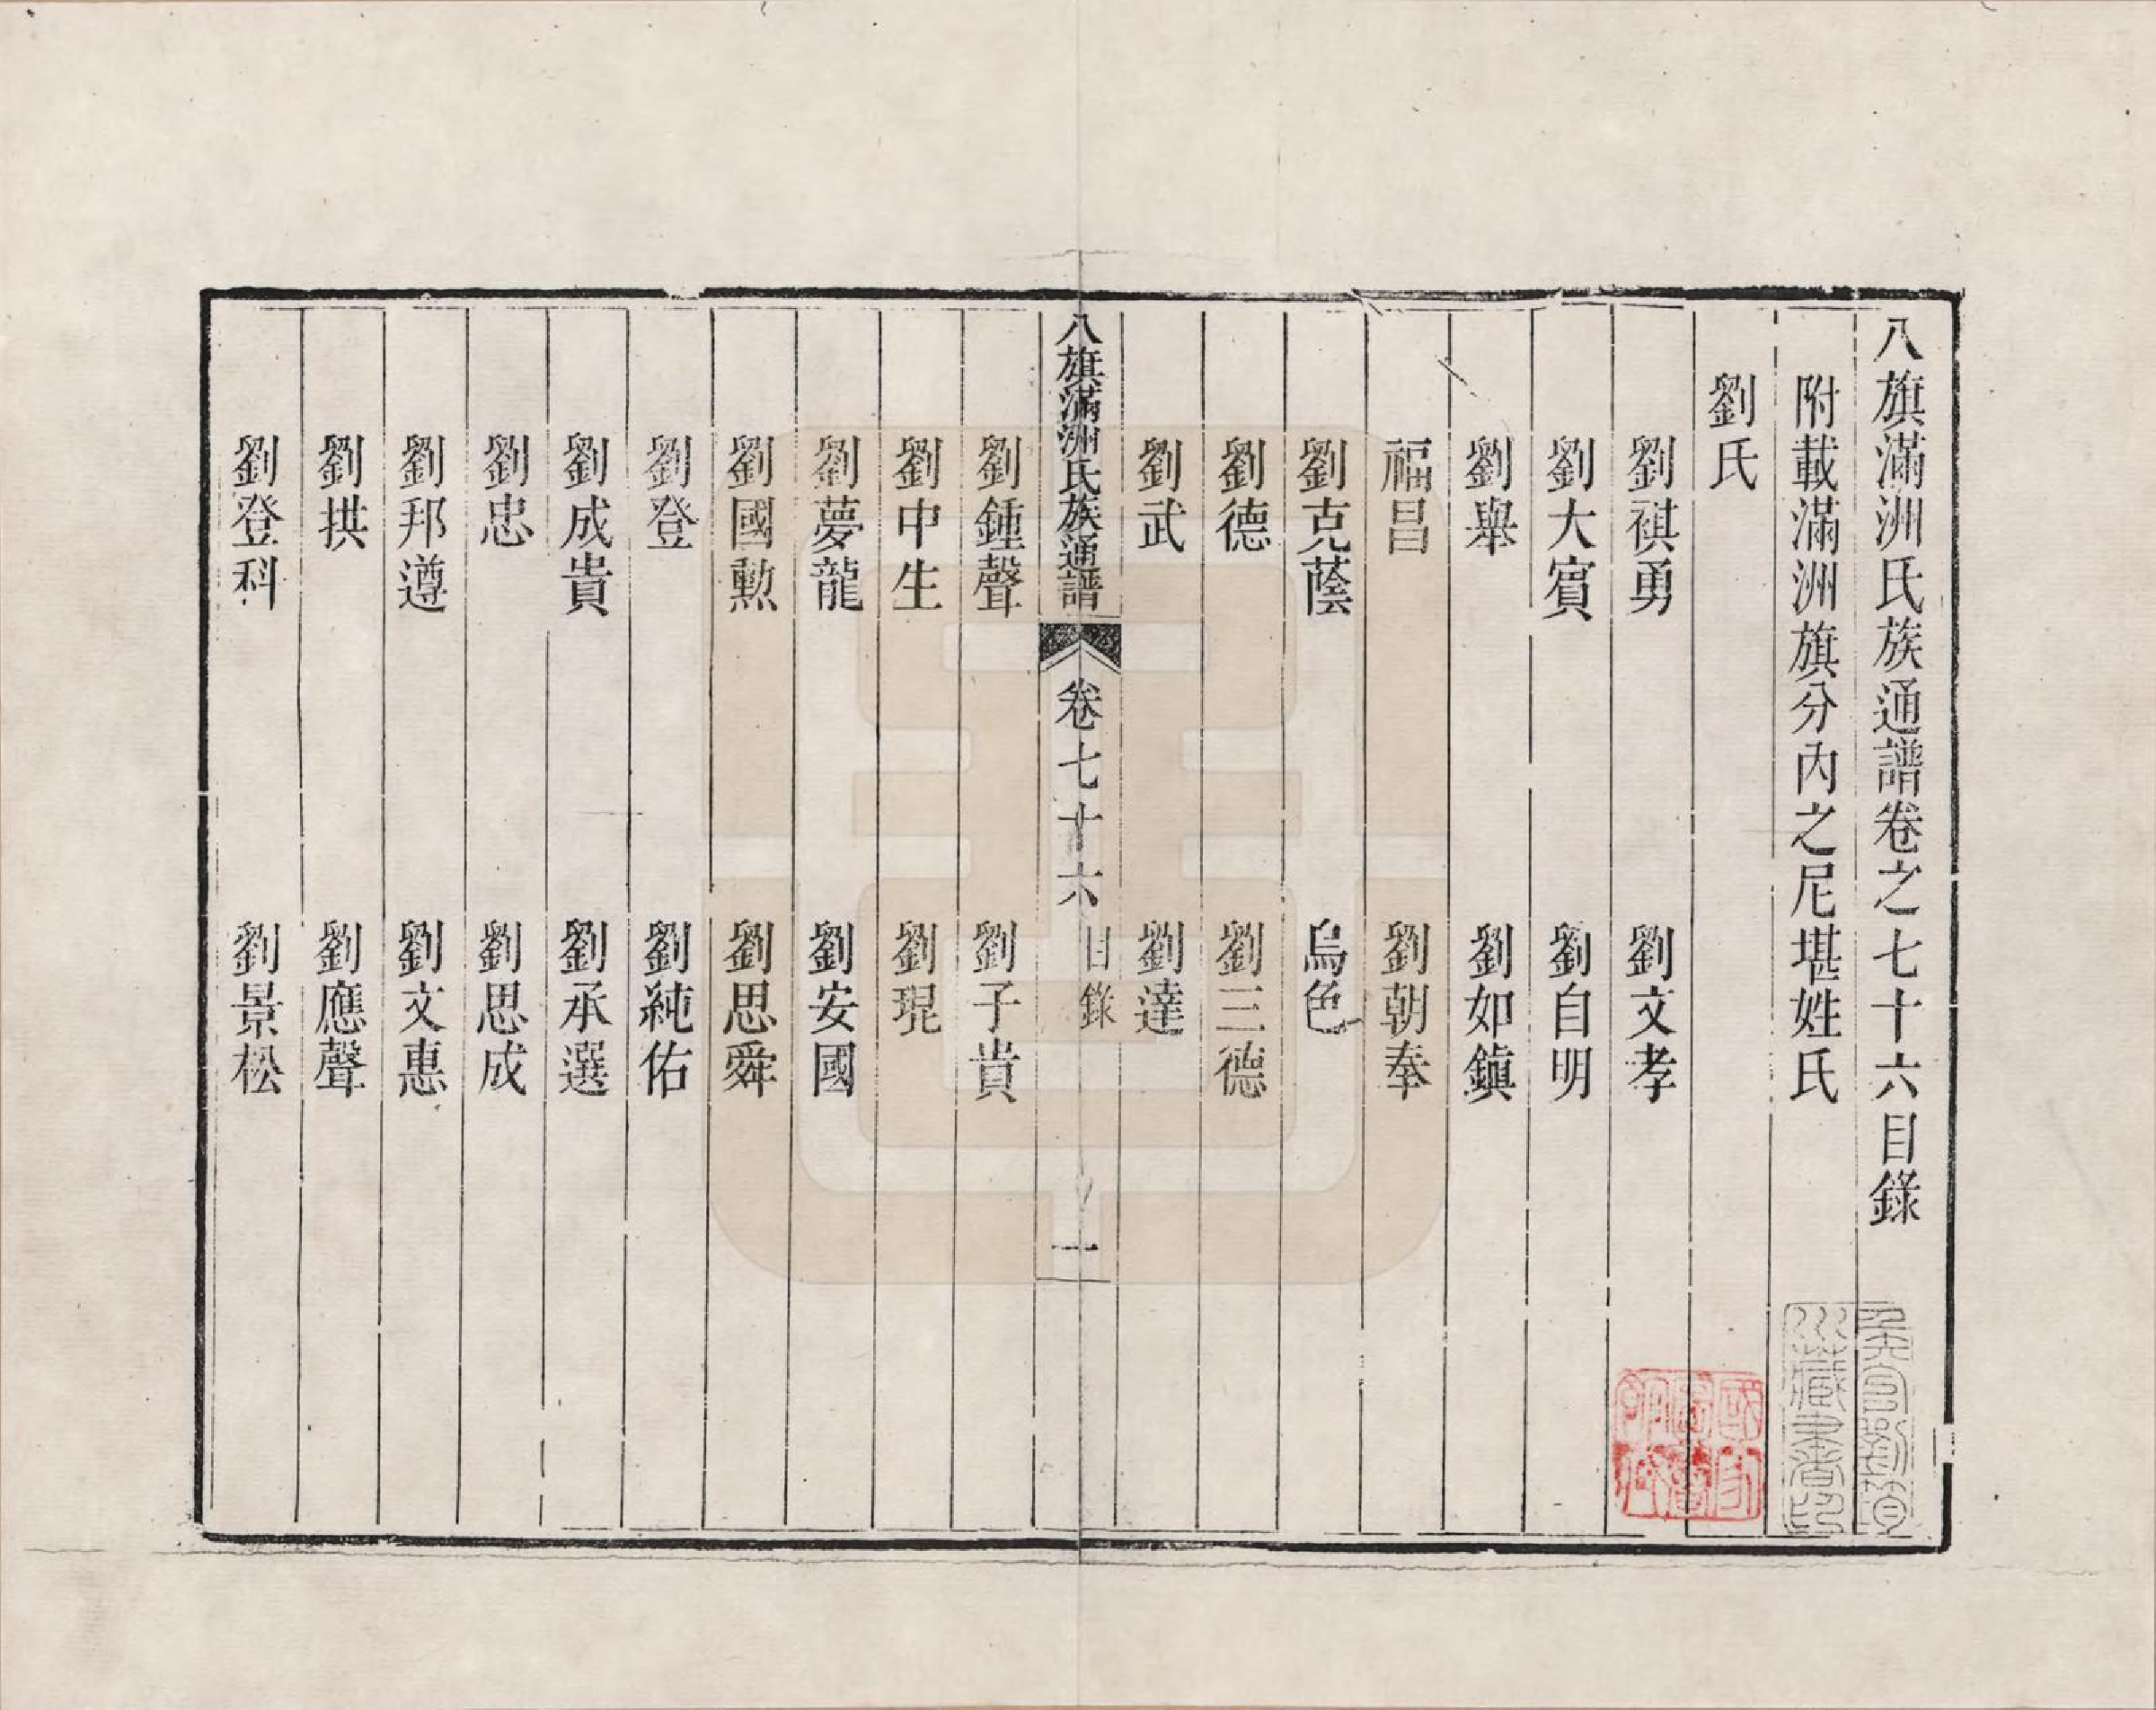 八旗滿洲氏族通譜卷之七十六目錄
附載滿洲旗分內之尼堪姓氏
劉氏
劉祺勇 劉文孝
劉大賓 劉自明
劉舉 劉如鎮
福昌 劉朝奉
劉克蔭 烏色
劉德 劉三德
劉武 劉達
八旗滿洲氏族通譜 卷七十六 目錄 一
劉鍾聲 劉子貴
劉中生 劉琨
劉夢龍 劉安國
劉國勲 劉思舜
劉登 劉純佑
劉成貴 劉承選
劉忠 劉思成
劉邦遵 劉文惠
劉拱 劉應聲
劉登科 劉景松